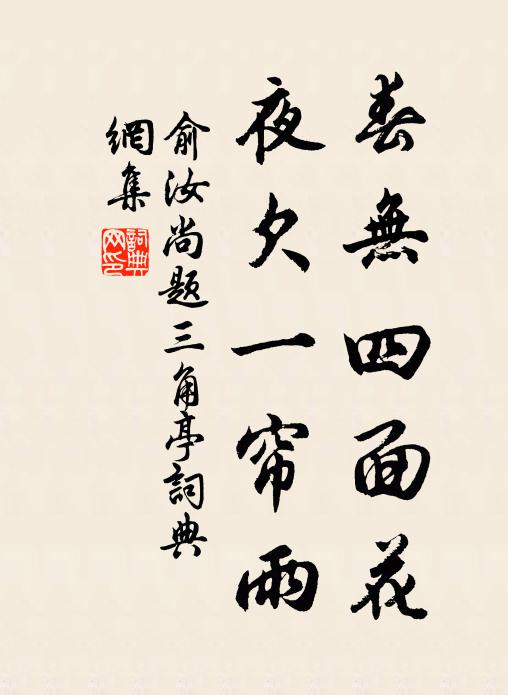 春無四面花
夜欠一帘雨
俞汝尚題三角亭詞典
網集
詞典
网印